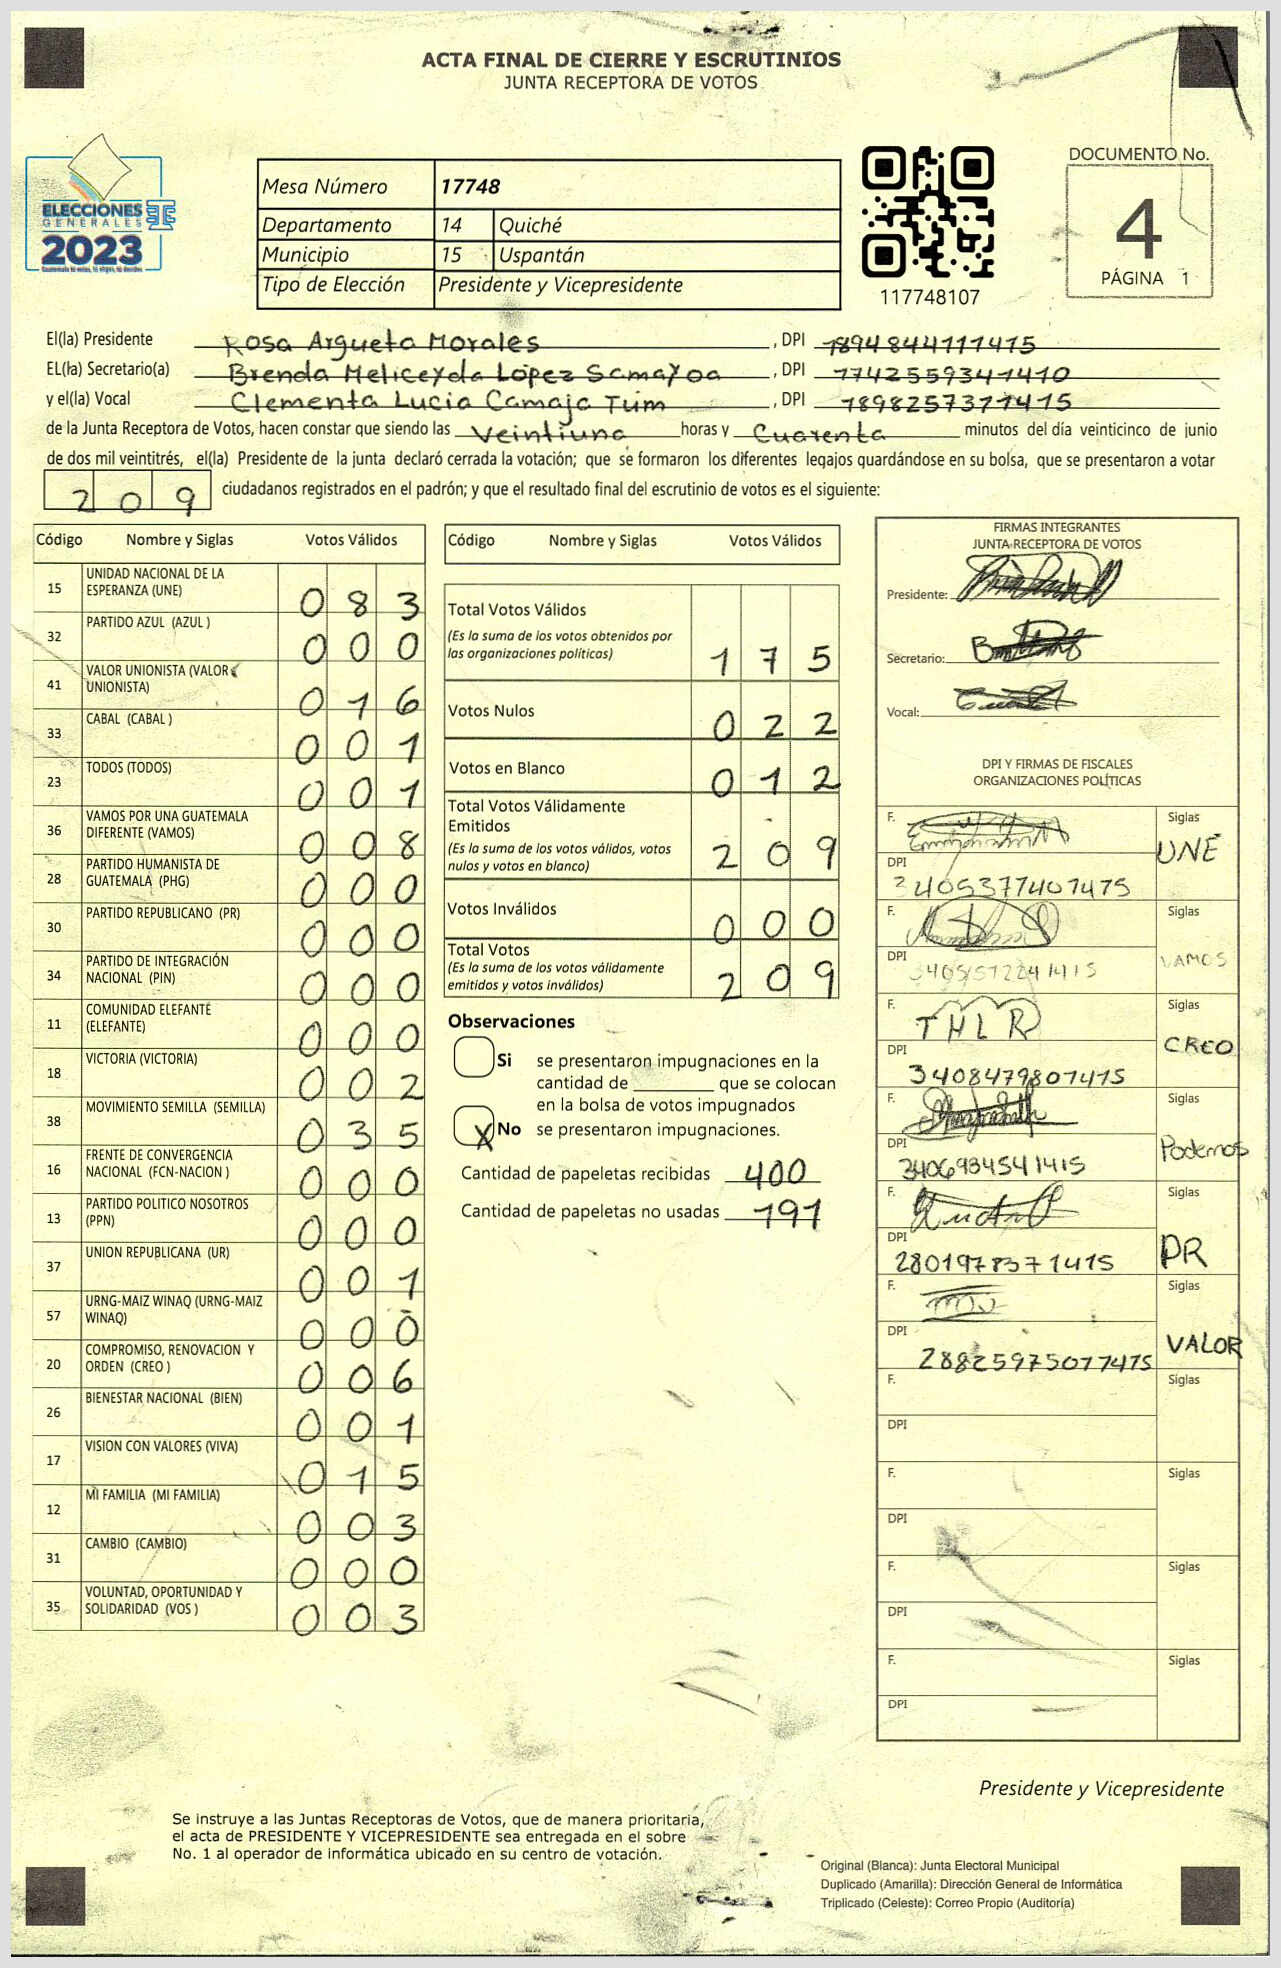 ACTA FINAL DE CIERRE Y ESCRUTINIOS
JUNTA RECEPTORA DE VOTOS
ELECCIONES
GENERALES
2023
Mesa Número 17748
Departamento 14 Quiché
Municipio 15 Uspantán
Tipo de Elección Presidente y Vicepresidente
117748107
DOCUMENTO No.
4
PÁGINA 1
El(la) Presidente Rosa Argueta Morales , DPI 1894844111415
EL(la) Secretario(a) Brenda Meliceyda López Samayoa , DPI 1742559341410
y el(la) Vocal Clementa Lucia Camaja Tum , DPI 1898257371415
de la Junta Receptora de Votos, hacen constar que siendo las Veintiuna horas y Cuarenta minutos del día veinticinco de junio
de dos mil veintitrés, el(la) Presidente de la junta declaró cerrada la votación; que se formaron los diferentes legajos guardándose en su bolsa, que se presentaron a votar
209 ciudadanos registrados en el padrón; y que el resultado final del escrutinio de votos es el siguiente:
Código Nombre y Siglas Votos Válidos
15 UNIDAD NACIONAL DE LA ESPERANZA (UNE) 083
32 PARTIDO AZUL (AZUL ) 000
41 VALOR UNIONISTA (VALOR UNIONISTA) 016
33 CABAL (CABAL ) 001
23 TODOS (TODOS) 001
36 VAMOS POR UNA GUATEMALA DIFERENTE (VAMOS) 008
28 PARTIDO HUMANISTA DE GUATEMALA (PHG) 000
30 PARTIDO REPUBLICANO (PR) 000
34 PARTIDO DE INTEGRACIÓN NACIONAL (PIN) 000
11 COMUNIDAD ELEFANTE (ELEFANTE) 000
18 VICTORIA (VICTORIA) 002
38 MOVIMIENTO SEMILLA (SEMILLA) 035
16 FRENTE DE CONVERGENCIA NACIONAL (FCN-NACION ) 000
13 PARTIDO POLITICO NOSOTROS (PPN) 000
37 UNION REPUBLICANA (UR) 001
57 URNG-MAIZ WINAQ (URNG-MAIZ WINAQ) 000
20 COMPROMISO, RENOVACION Y ORDEN (CREO ) 006
26 BIENESTAR NACIONAL (BIEN) 001
17 VISION CON VALORES (VIVA) 015
12 MI FAMILIA (MI FAMILIA) 003
31 CAMBIO (CAMBIO) 000
35 VOLUNTAD, OPORTUNIDAD Y SOLIDARIDAD (VOS ) 003
Código Nombre y Siglas Votos Válidos
Total Votos Válidos
(Es la suma de los votos obtenidos por
las organizaciones políticas) 175
Votos Nulos 022
Votos en Blanco 012
Total Votos Válidamente
Emitidos
(Es la suma de los votos válidos, votos
nulos y votos en blanco) 209
Votos Inválidos 000
Total Votos
(Es la suma de los votos válidamente
emitidos y votos inválidos) 209
Observaciones
Si se presentaron impugnaciones en la
cantidad de ________ que se colocan
en la bolsa de votos impugnados
X No se presentaron impugnaciones.
Cantidad de papeletas recibidas 400
Cantidad de papeletas no usadas 191
FIRMAS INTEGRANTES
JUNTA RECEPTORA DE VOTOS
Presidente:
Secretario:
Vocal:
DPI Y FIRMAS DE FISCALES
ORGANIZACIONES POLÍTICAS
F. Siglas
UNE
DPI
3405377401415
F. Siglas
VAMOS
DPI
F. THLR Siglas
CREO
DPI
3408479801415
F. Siglas
Podemos
DPI
3406984541415
F. Siglas
PR
DPI
2801978371415
F. Siglas
VALOR
DPI
2882597501415
F. Siglas
DPI
F. Siglas
DPI
F. Siglas
DPI
F. Siglas
DPI
Presidente y Vicepresidente
Se instruye a las Juntas Receptoras de Votos, que de manera prioritaria,
el acta de PRESIDENTE Y VICEPRESIDENTE sea entregada en el sobre
No. 1 al operador de informática ubicado en su centro de votación.
Original (Blanca): Junta Electoral Municipal
Duplicado (Amarilla): Dirección General de Informática
Triplicado (Celeste): Correo Propio (Auditoría)